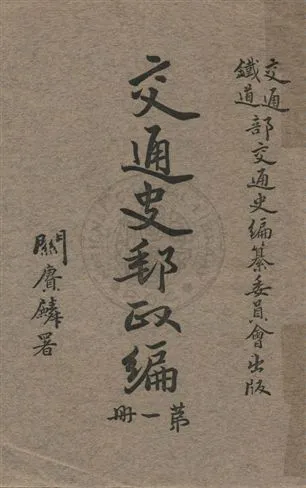 交通鐵道部交通史編纂委員會出版
交通史郵政編
第一册
關賡麟署